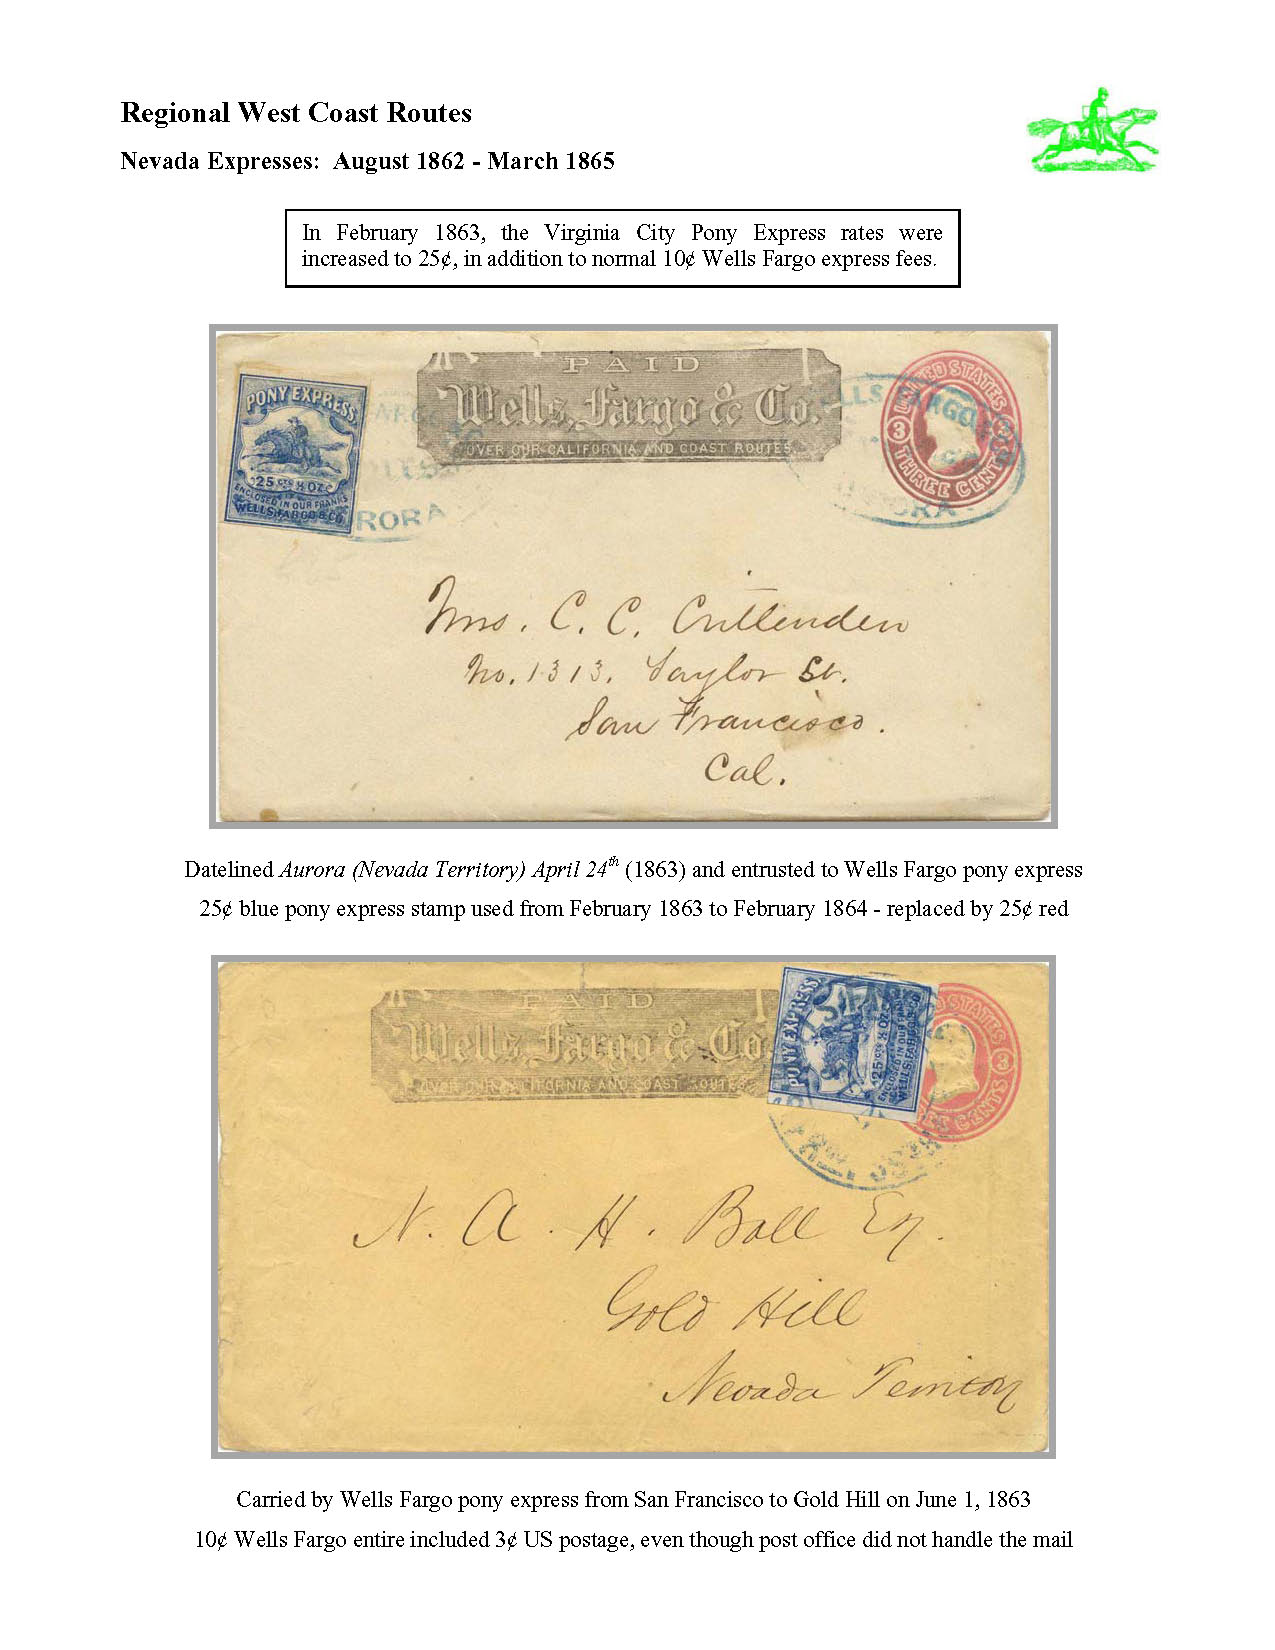 Regional West Coast Routes
Nevada Expresses: August 1862 - March 1865
In February 1863, the Virginia City Pony Express rates were
increased to 25¢, in addition to normal 10¢ Wells Fargo express fees.
PAID
Wells, Fargo & Co.
OVER OUR CALIFORNIA AND COAST ROUTES.
PONY EXPRESS
25 CTS ½ OZ
ENCLOSED IN OUR FRANKS
WELLS, FARGO & CO
RORA
LLS FARGO
RA
UNITED STATES
3 3
THREE CENTS
Mrs. C. C. Crittenden
No. 1313. Taylor St.
San Francisco.
Cal.
Datelined Aurora (Nevada Territory) April 24th (1863) and entrusted to Wells Fargo pony express
25¢ blue pony express stamp used from February 1863 to February 1864 - replaced by 25¢ red
PAID
Wells, Fargo & Co.
OVER OUR CALIFORNIA AND COAST ROUTES
PONY EXPRESS
25 CTS ½ OZ
ENCLOSED IN OUR FRANKS
WELLS, FARGO & CO
STATES
3
CENTS
N. A. H. Ball Eq.
Gold Hill
Nevada Territory
Carried by Wells Fargo pony express from San Francisco to Gold Hill on June 1, 1863
10¢ Wells Fargo entire included 3¢ US postage, even though post office did not handle the mail